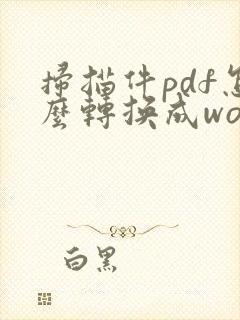 掃描件pdf怎
麼轉換成wo
白黑